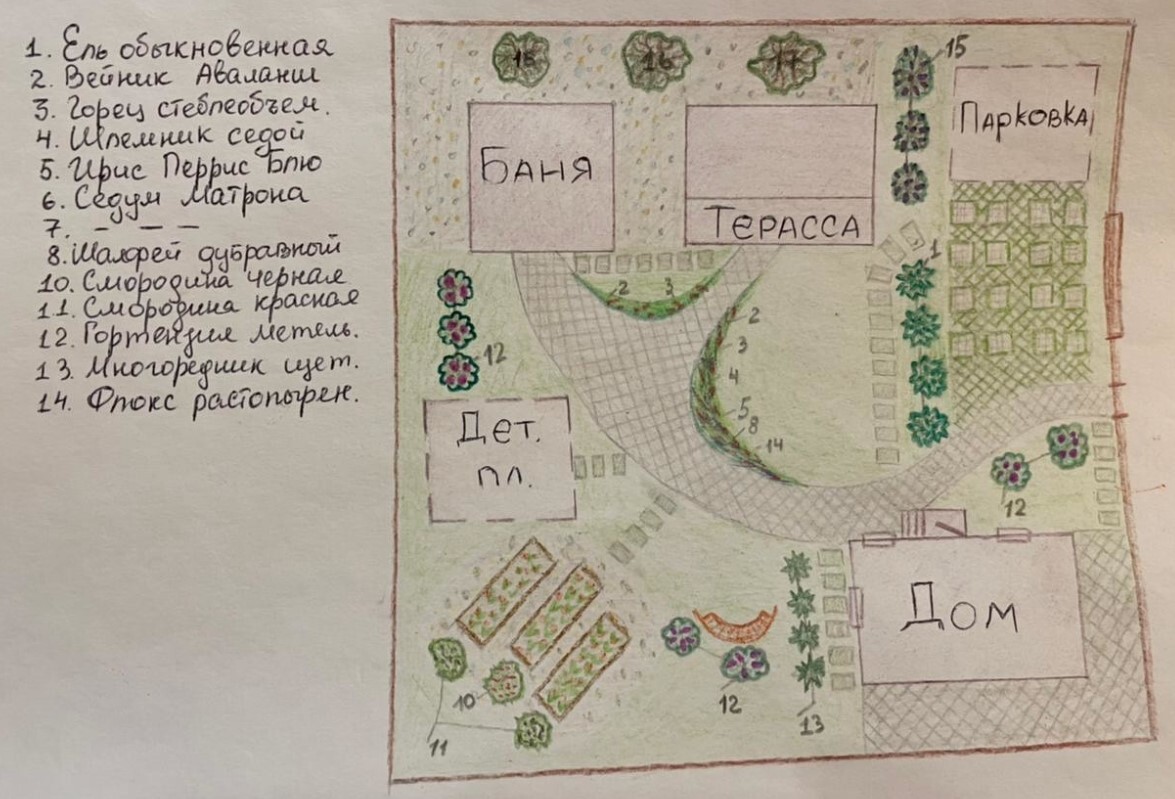 1. Ель обыкновенная
2. Вейник Аваланш
3. Горец стеблеобъем.
4. Шлемник седой
5. Ирис Перрис Блю
6. Седум Матрона
7. - - -
8. Шалфей дубравный
10. Смородина черная
11. Смородина красная
12. Гортензия метель.
13. Многорядник щет.
14. Флокс растопырен.
16
17
15
Баня
Терасса
Парковка
1
2
3
2
3
4
5
8
14
12
Дет.
пл.
12
Дом
10
11
12
13